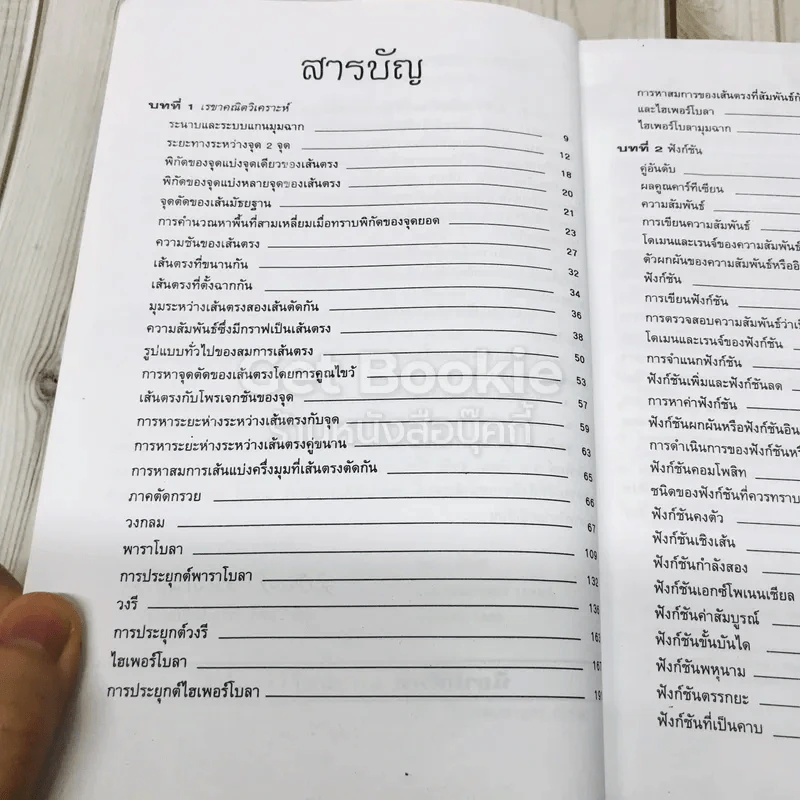 สารบัญ
บทที่ 1 เรขาคณิตวิเคราะห์
ระนาบและระบบแกนมุมฉาก 9
ระยะทางระหว่างจุด 2 จุด 12
พิกัดของจุดแบ่งจุดเดียวของเส้นตรง 18
พิกัดของจุดแบ่งหลายจุดของเส้นตรง 20
จุดตัดของเส้นมัธยฐาน 21
การคำนวณหาพื้นที่สามเหลี่ยมเมื่อทราบพิกัดของจุดยอด 23
ความชันของเส้นตรง 27
เส้นตรงที่ขนานกัน 32
เส้นตรงที่ตั้งฉากกัน 34
มุมระหว่างเส้นตรงสองเส้นตัดกัน 36
ความสัมพันธ์ซึ่งมีกราฟเป็นเส้นตรง 38
รูปแบบทั่วไปของสมการเส้นตรง 50
การหาจุดตัดของเส้นตรงโดยการคูณไขว้ 53
เส้นตรงกับโพรเจกชันของจุด 57
การหาระยะห่างระหว่างเส้นตรงกับจุด 59
การหาระยะห่างระหว่างเส้นตรงคู่ขนาน 63
การหาสมการเส้นแบ่งครึ่งมุมที่เส้นตรงตัดกัน 65
ภาคตัดกรวย 66
วงกลม 67
พาราโบลา 109
การประยุกต์พาราโบลา 132
วงรี 136
การประยุกต์วงรี 163
ไฮเพอร์โบลา 167
การประยุกต์ไฮเพอร์โบลา 19
การหาสมการของเส้นตรงที่สัมพันธ์กั
และไฮเพอร์โบลา
ไฮเพอร์โบลามุมฉาก
บทที่ 2 ฟังก์ชัน
คู่อันดับ
ผลคูณคาร์ทีเซียน
ความสัมพันธ์
การเขียนความสัมพันธ์
โดเมนและเรนจ์ของความสัมพันธ์
ตัวผกผันของความสัมพันธ์หรืออิ
ฟังก์ชัน
การเขียนฟังก์ชัน
การตรวจสอบความสัมพันธ์ว่าเป็
โดเมนและเรนจ์ของฟังก์ชัน
การจำแนกฟังก์ชัน
ฟังก์ชันเพิ่มและฟังก์ชันลด
การหาค่าฟังก์ชัน
ฟังก์ชันผกผันหรือฟังก์ชันอิน
การดำเนินการของฟังก์ชันหรื
ฟังก์ชันคอมโพสิท
ชนิดของฟังก์ชันที่ควรทราบ
ฟังก์ชันคงตัว
ฟังก์ชันเชิงเส้น
ฟังก์ชันกำลังสอง
ฟังก์ชันเอกซ์โพเนนเชียล
ฟังก์ชันค่าสัมบูรณ์
ฟังก์ชันขั้นบันได
ฟังก์ชันพหุนาม
ฟังก์ชันตรรกยะ
ฟังก์ชันที่เป็นคาบ
Get Bookie
ร้านหนังสือบุ๊คกี้